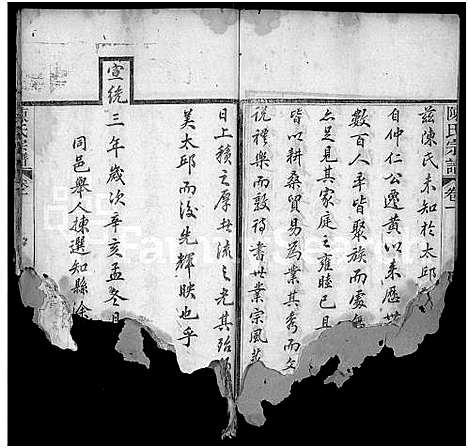 陳氏宗譜 卷一
茲陳氏未知於太邱
自仲仁公遷黃以來歷世
數百人平皆聚族而處無
亦足見其家庭之雍睦已且
皆以耕桑貿易為業其秀而文
說禮樂而敦詩書世業宗風
日上積之厚者流之光其殆
美太邱而後先輝映也乎
宣統三年歲次辛亥孟冬月
同邑舉人揀選知縣余
陳氏宗譜 卷一